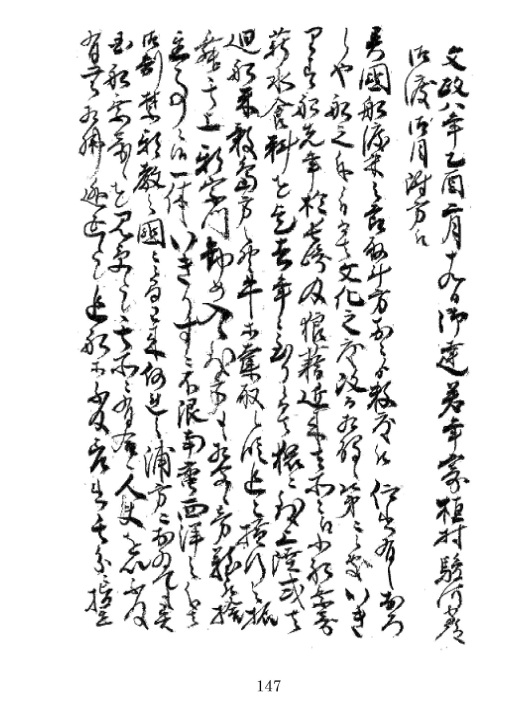 文政八年乙酉二月十九日御達若年寄植村駿河守
御渡御目附方江
異國船渡来之節取斗方前々より数度被仰出有之おろ
しや船之儀ニ付而ハ文化之度改而相触候次第ニ候処いき
りす船先年於長崎及狼藉近来ハ所々江小船乗寄
薪水食料を乞去年ニ至り候而ハ猥ニ致上陸或ハ
廻船米穀島方之野牛等奪取候段追々横行之振
舞其上邪宗門勧め入候致方も相聞旁難捨
置事ニ候一体いきりすニ不限南蛮西洋之儀ハ
御制禁邪教之國ニ候間以来何連之浦方ニおゐても異
国船乗寄候を見受候ハヽ其所ニ有合候人夫を以不及
有無打拂逃延候ハヽ追船等不及差出其分ニ差置
147